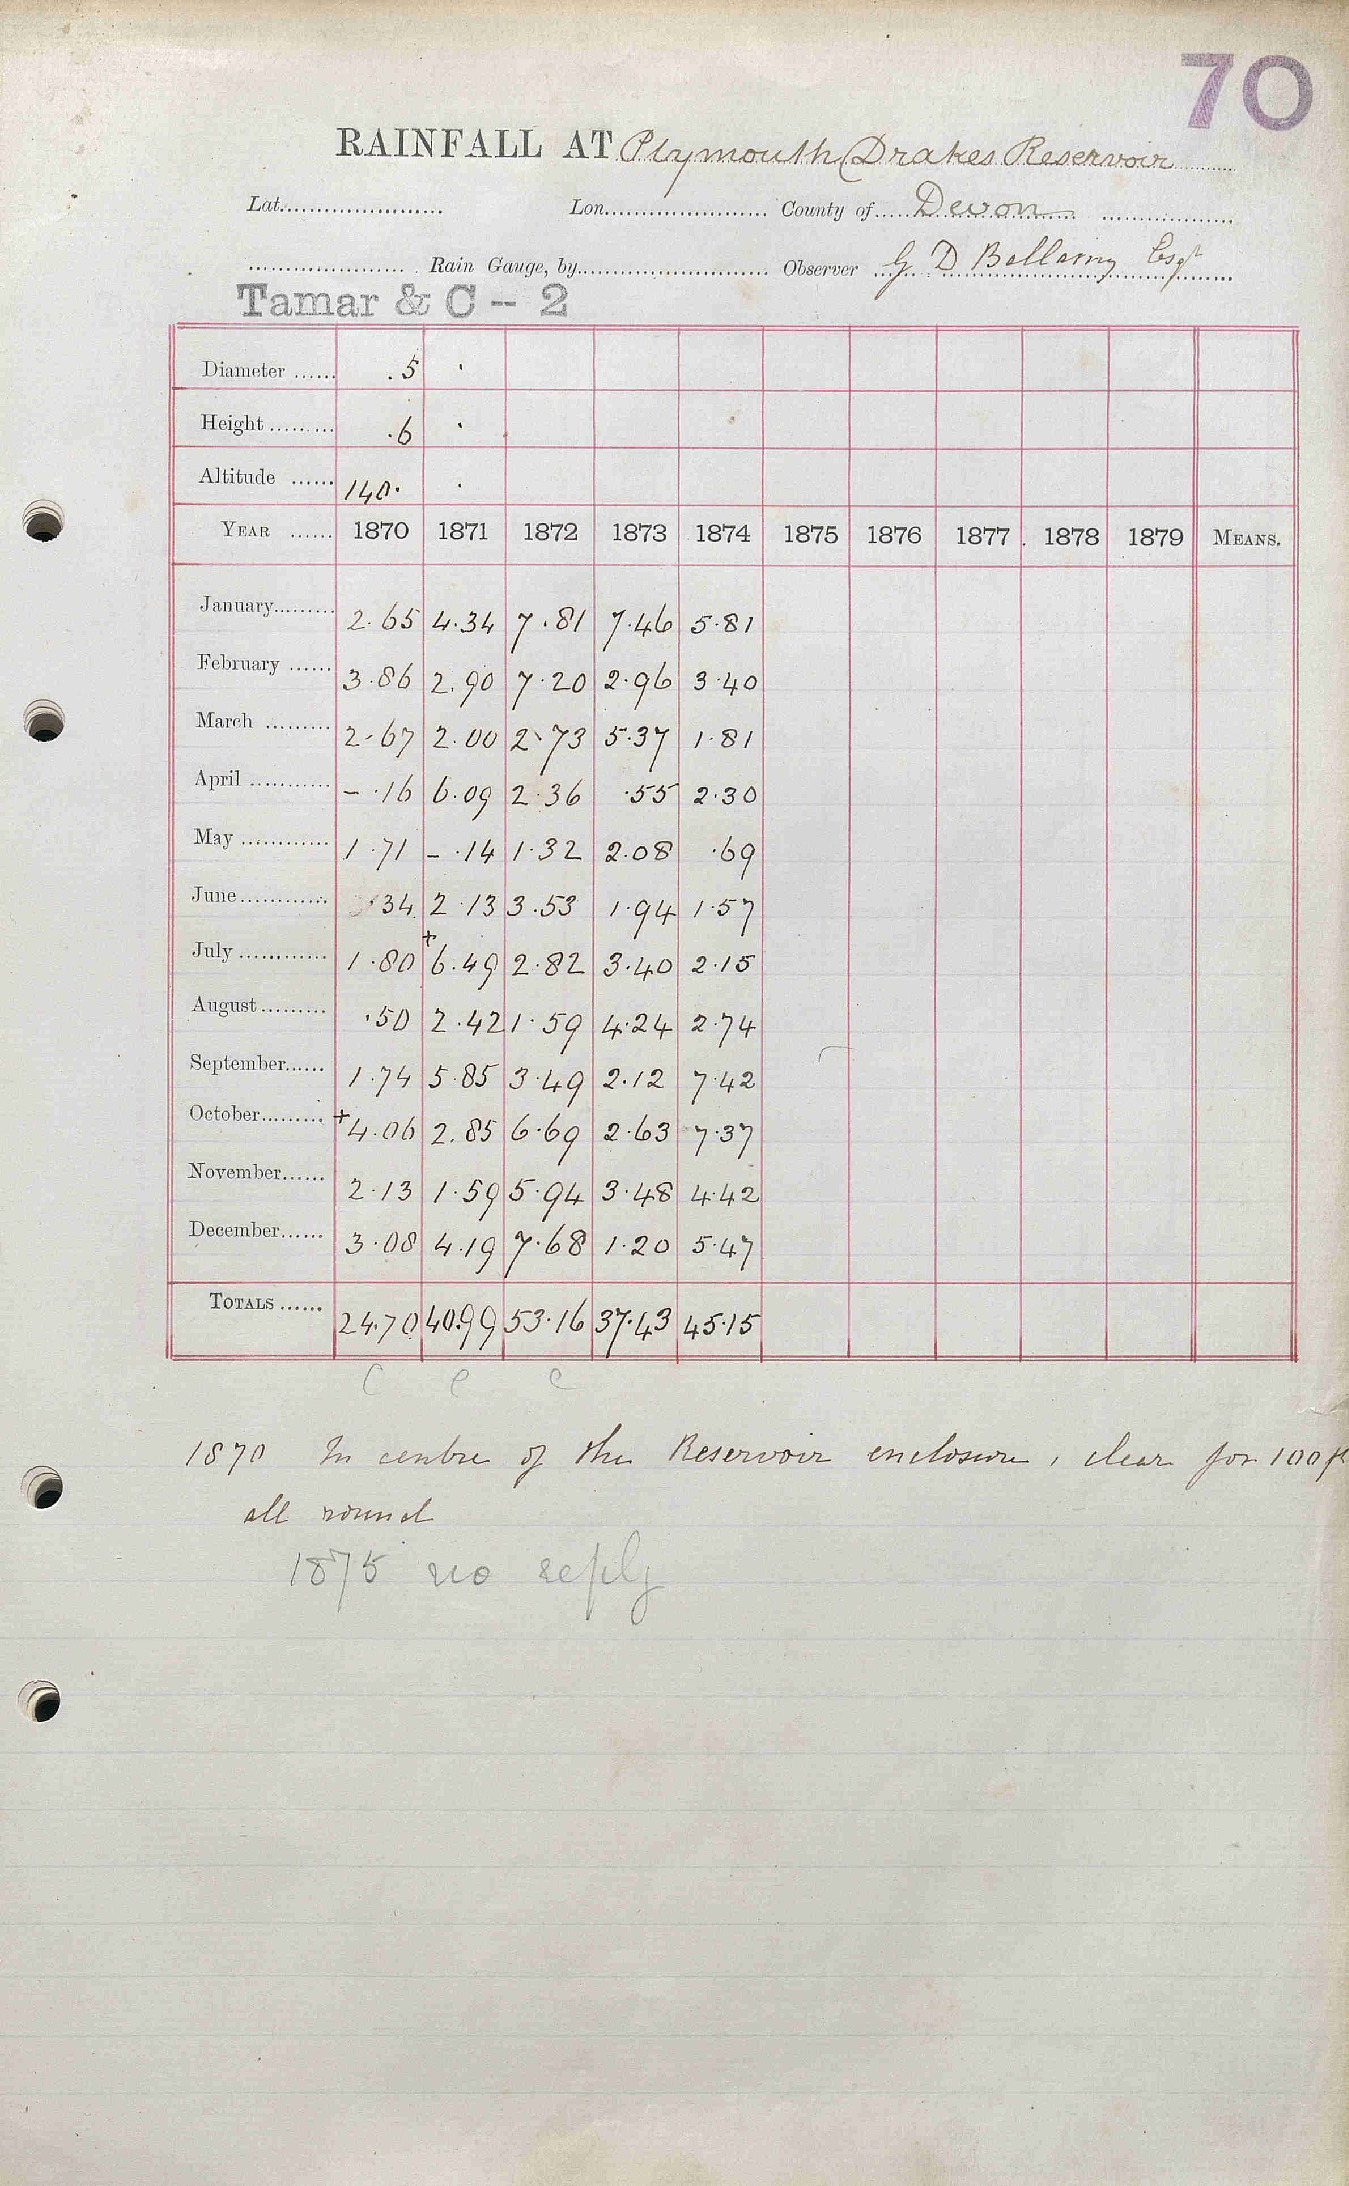 70
RAINFALL AT Plymouth (Drakes Reservoir
Lat. Lon. County of Devon
Rain Gauge, by Observer G D Bellamy Esqr
Tamar & C - 2
Diameter ...... .5 .
Height ......... .6 .
Altitude ...... 140. .
YEAR ...... 1870 1871 1872 1873 1874 1875 1876 1877 1878 1879 MEANS.
January......... 2.65 4.34 7.81 7.46 5.81
February ...... 3.86 2.90 7.20 2.96 3.40
March ......... 2.67 2.00 2.73 5.37 1.81
April ........... - .16 6.09 2.36 .55 2.30
May ............ 1.71 - .14 1.32 2.08 .69
June............ .34 2.13 3.53 1.94 1.57
July ............ 1.80 +6.49 2.82 3.40 2.15
August ......... .50 2.42 1.59 4.24 2.74
September...... 1.74 5.85 3.49 2.12 7.42
October......... +4.06 2.85 6.69 2.63 7.37
November...... 2.13 1.59 5.94 3.48 4.42
December...... 3.08 4.19 7.68 1.20 5.47
TOTALS ...... 24.70 40.99 53.16 37.43 45.15
c e c
1870 In centre of the Reservoir enclosure, clear for 100 ft
all round
1875 no reply